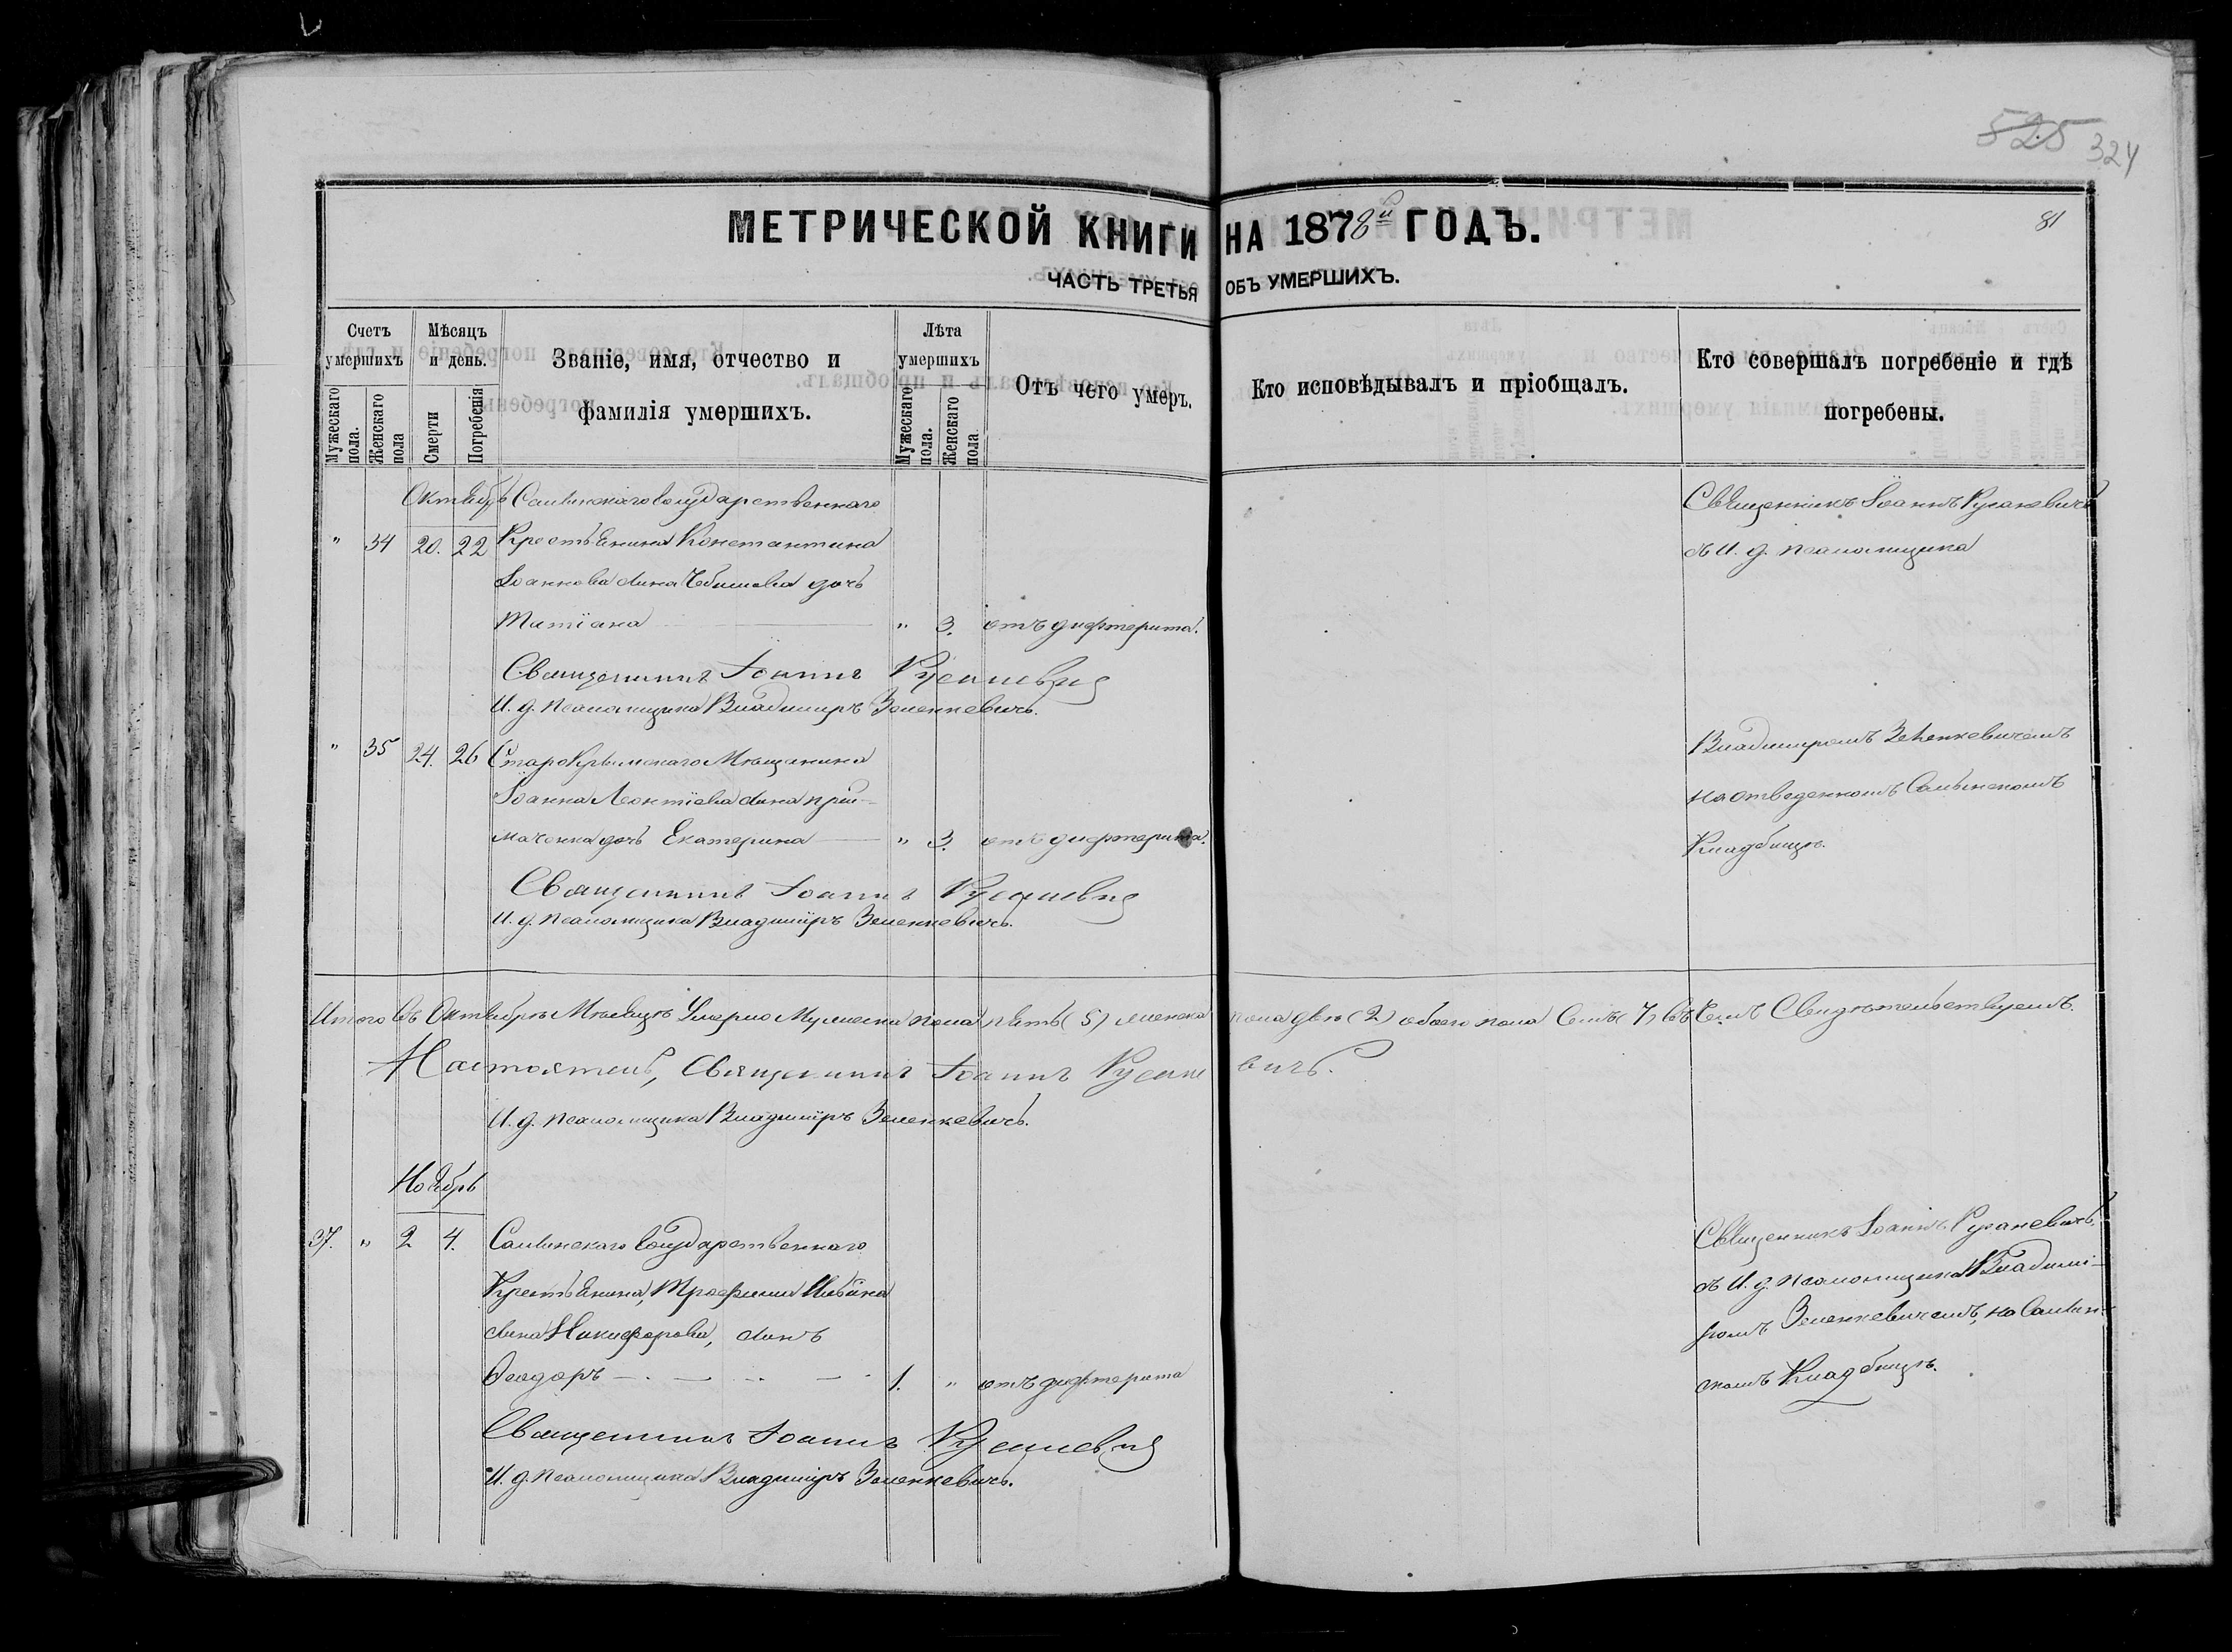 525 324
81
МЕТРИЧЕСКОЙ КНИГИ НА 1878й ГОДЪ.
ЧАСТЬ ТРЕТЬЯ ОБЪ УМЕРШИХЪ.
Счетъ умершихъ
Мужескаго пола.
Женскаго пола
Мѣсяцъ и день.
Смерти
Погребенія
Званіе, имя, отчество и
фамилія умершихъ.
Лѣта умершихъ
Мужескаго пола.
Женскаго пола.
Отъ чего умеръ.
Кто исповѣдывалъ и пріобщалъ.
Кто совершалъ погребеніе и гдѣ
погребены.
Октябрь Салынскаго Государственнаго
" 34 20. 22 Крестьянина Константина
Іоаннова сына дочь
Татіана " 3. отъ дифтерита.
Священникъ Іоаннъ Русаневичъ
съ И. д. псаломщика
Священникъ Іоаннъ Русаневичъ
И. д. псаломщика Владиміръ Зеленкевичъ.
" 35 24. 26 СтароКрымскаго Мѣщанина
Іоанна Леонтіева сына Прій-
маченка дочь Екатерина " 3. отъ дифтерита.
Владиміромъ Зеленкевичемъ
на отведенномъ Салынскомъ
Кладбищѣ.
Священникъ Іоаннъ Русаневичъ
И. д. псаломщика Владиміръ Зеленкевичъ.
Итого въ Октябрѣ Мѣсяцѣ Умерло Мужеска пола пять (5) женска пола двѣ (2) обоего пола Семь (7) въ чемъ Свидѣтельствуемъ.
Настоятель, Священникъ Іоаннъ Русаневичъ.
И. д. псаломщика Владиміръ Зеленкевичъ.
Ноябрь
37. " 2 4. Салынскаго Государственнаго
Крестьянина, Трофима
сына Никифорова, сынъ
Ѳеодоръ 1. " отъ дифтерита
Священникъ Іоаннъ Русаневичъ
съ И. д. псаломщика Владимі-
ромъ Зеленкевичемъ, на Салын-
скомъ Кладбищѣ.
Священникъ Іоаннъ Русаневичъ
И. д. псаломщика Владиміръ Зеленкевичъ.